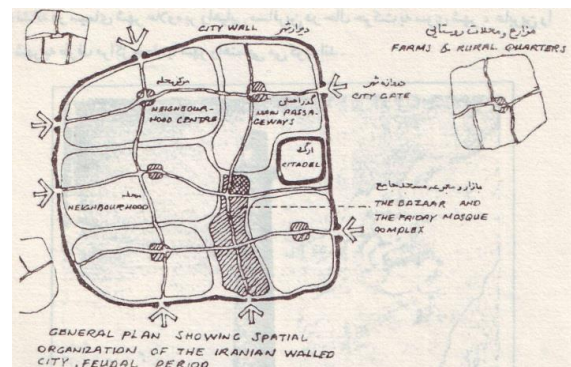 CITY WALL
دیوار شهر
مزارع و محلات روستایی
FARMS & RURAL QUARTERS
مرکز محله
NEIGHBOUR-
-HOOD CENTRE
گذر اصلی
MAIN PASSA-
GEWAYS
دروازه شهر
CITY GATE
ارگ
CITADEL
محله
NEIGHBOURHOOD
بازار و مجموعه مسجد جامع
THE BAZAAR AND
THE FRIDAY MOSQUE
COMPLEX
GENERAL PLAN SHOWING SPATIAL
ORGANIZATION OF THE IRANIAN WALLED
CITY, FEUDAL PERIOD